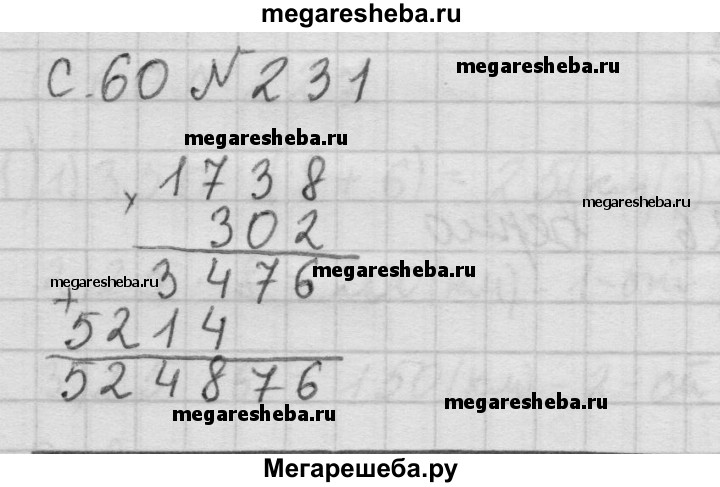 megaresheba.ru
с.60 № 231
megaresheba.ru
megaresheba.ru
× 1738
302
megaresheba.ru
megaresheba.ru
3476
megaresheba.ru
+
5214
524876
megaresheba.ru
megaresheba.ru
Мегарешеба.ру